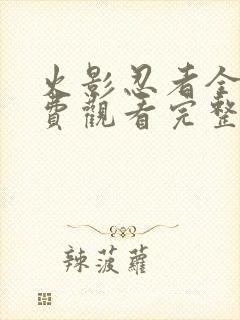 火影忍者全
費觀看完整
辣菠蘿